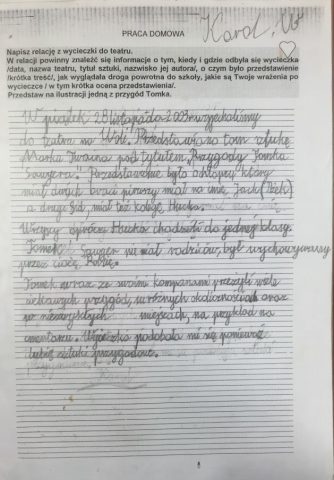 Karol. W
PRACA DOMOWA
Napisz relację z wycieczki do teatru.
W relacji powinny znaleźć się informacje o tym, kiedy i gdzie odbyła się wycieczka
/data, nazwa teatru, tytuł sztuki, nazwisko jej autora/, o czym było przedstawienie
/krótka treść/, jak wyglądała droga powrotna do szkoły, jakie są Twoje wrażenia po
wycieczce / w tym krótka ocena przedstawienia/.
Przedstaw na ilustracji jedną z przygód Tomka.
W piątek 28 listopada 2003 wyjechaliśmy
do teatru na Woli. Przedstawiano tam sztukę
Marka Twaina pod tytułem "Przygody Tomka
Sawyera". Przedstawienie było o chłopcu który
miał dwóch braci pierwszy miał na imię
a drugi Sid, miał też kolegę Hucka.
Wszyscy oprócz Hucka chodzili do jednej klasy.
Tomek Sawyer nie miał rodziców, był wychowywany
przez ciocię Polly.
Tomek wraz ze swoimi kompanami przeżyli wiele
ciekawych przygód, w różnych okolicznościach oraz
w niezwykłych miejscach, na przykład na
cmentarzu. Wycieczka podobała mi się ponieważ
lubię sztuki przygodowe.